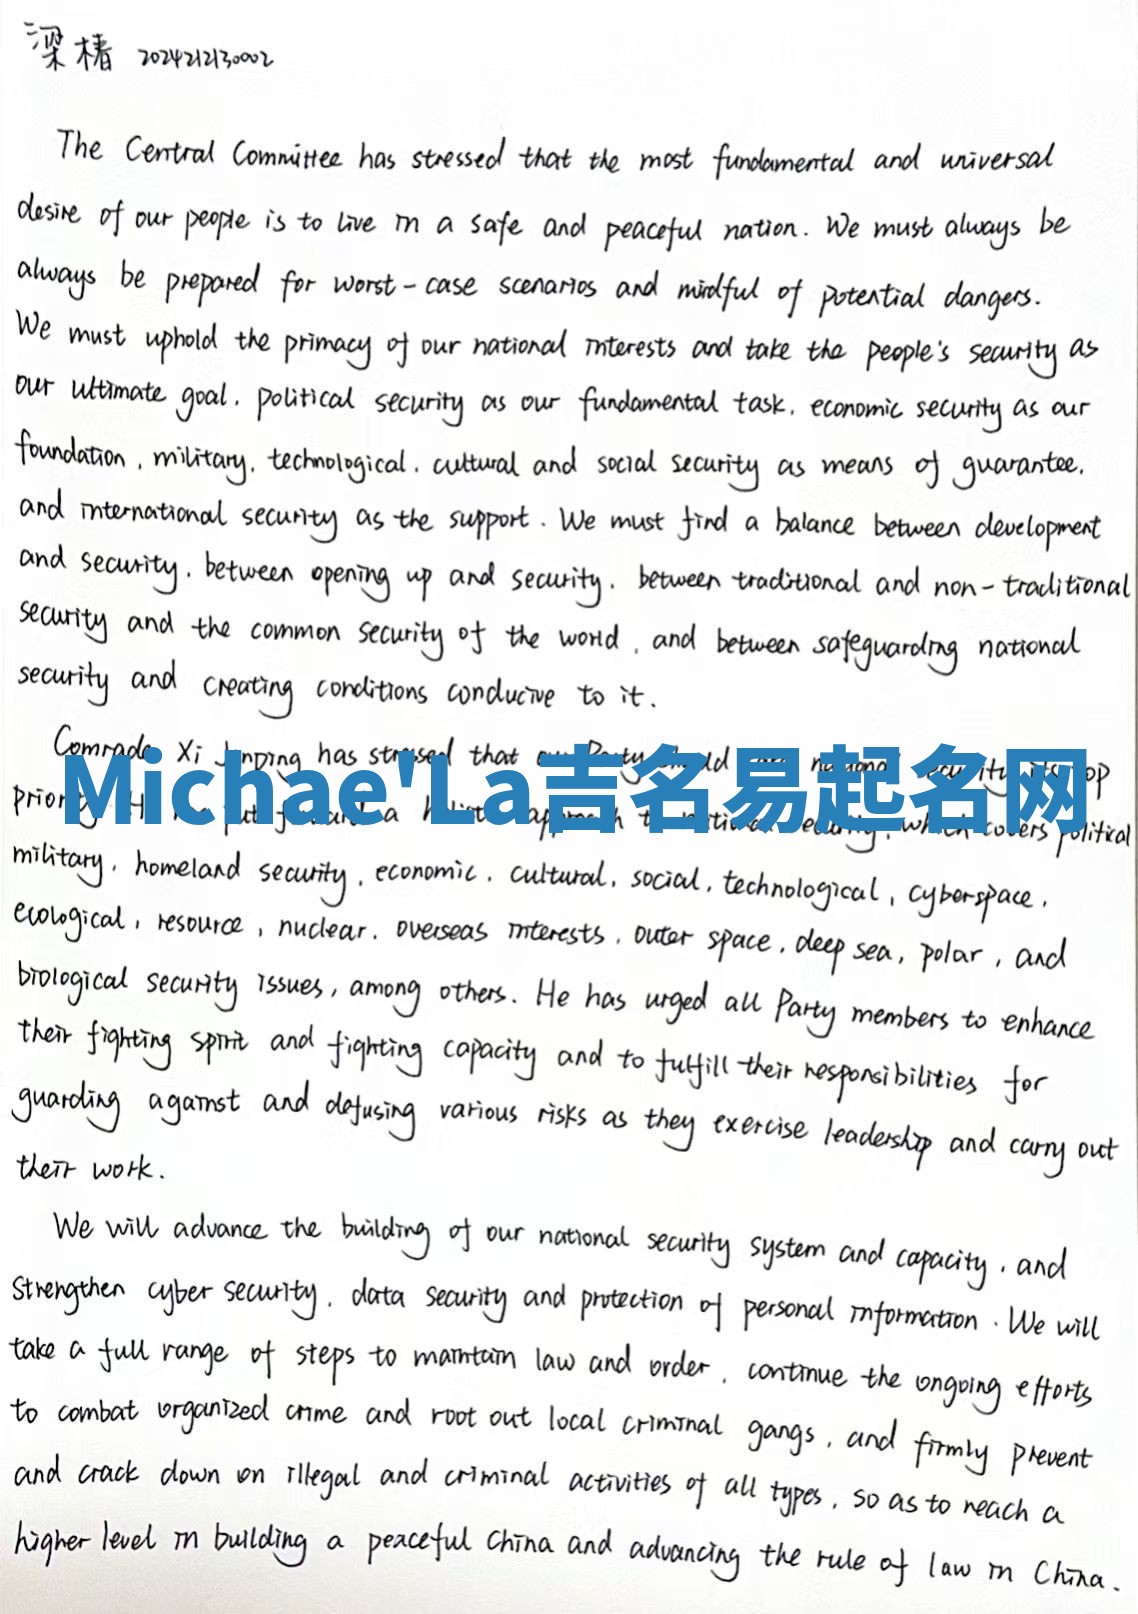 梁椿 2024212130002
The Central Committee has stressed that the most fundamental and universal
desire of our people is to live in a safe and peaceful nation. We must always be
always be prepared for worst-case scenarios and mindful of potential dangers.
We must uphold the primacy of our national interests and take the people's security as
our ultimate goal, political security as our fundamental task, economic security as our
foundation, military, technological, cultural and social security as means of guarantee,
and international security as the support. We must find a balance between development
and security, between opening up and security, between traditional and non-traditional
security and the common security of the world, and between safeguarding national
security and creating conditions conducive to it.
Comrade Xi Jinping has stressed that
Michae'La吉名易起名网
a which covers political
military, homeland security, economic, cultural, social, technological, cyberspace,
ecological, resource, nuclear, overseas interests, outer space, deep sea, polar, and
biological security issues, among others. He has urged all Party members to enhance
their fighting spirit and fighting capacity and to fulfill their responsibilities for
guarding against and defusing various risks as they exercise leadership and carry out
their work.
We will advance the building of our national security system and capacity, and
strengthen cyber security, data security and protection of personal information. We will
take a full range of steps to maintain law and order, continue the ongoing efforts
to combat organized crime and root out local criminal gangs, and firmly prevent
and crack down on illegal and criminal activities of all types, so as to reach a
higher level in building a peaceful China and advancing the rule of law in China.